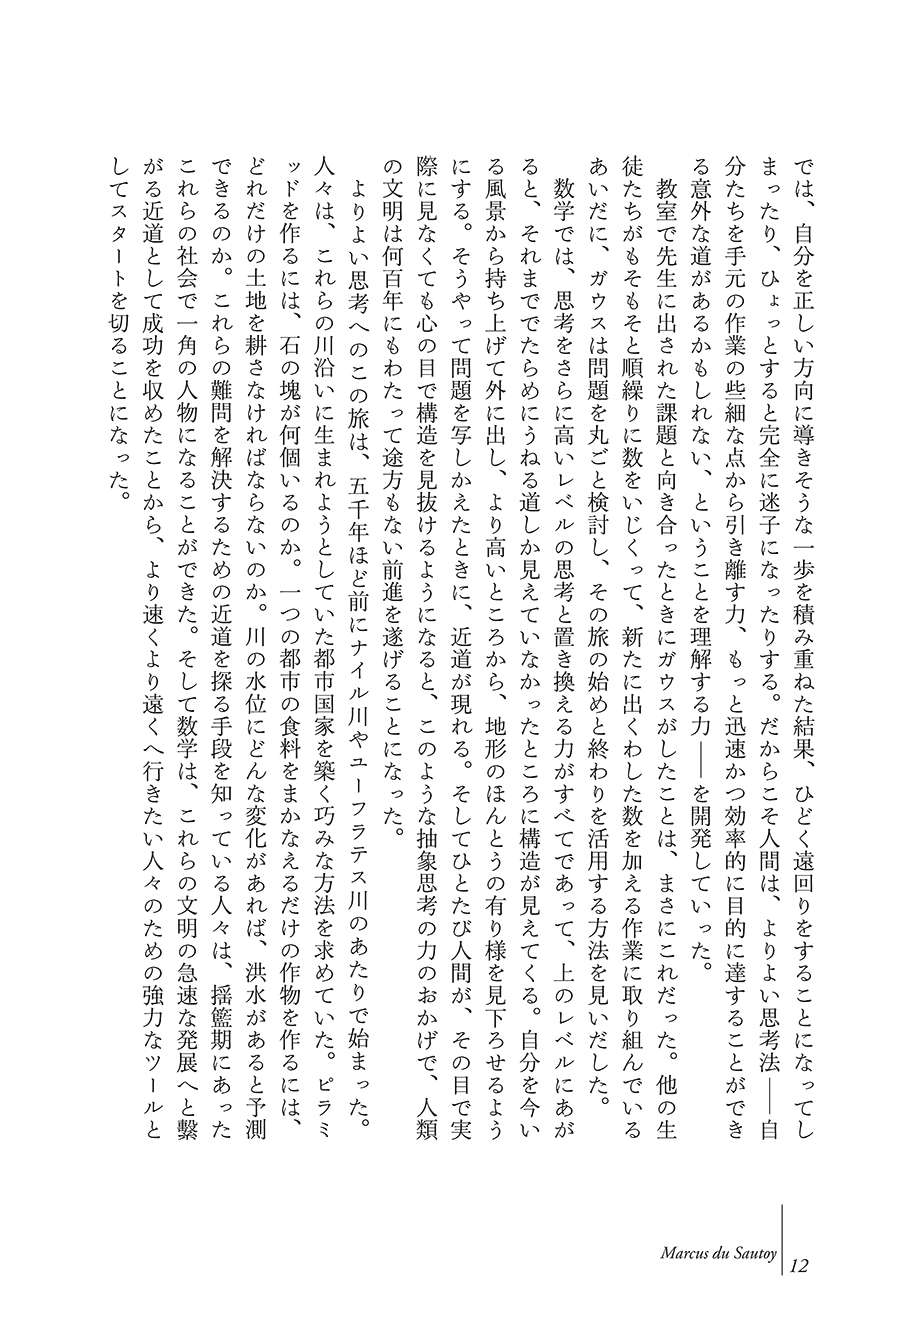 では、自分を正しい方向に導きそうな一歩を積み重ねた結果、ひどく遠回りをすることになってし
まったり、ひょっとすると完全に迷子になったりする。だからこそ人間は、よりよい思考法――自
分たちを手元の作業の些細な点から引き離す力、もっと迅速かつ効率的に目的に達することができ
る意外な道があるかもしれない、ということを理解する力――を開発していった。
　教室で先生に出された課題と向き合ったときにガウスがしたことは、まさにこれだった。他の生
徒たちがもそもそと順繰りに数をいじくって、新たに出くわした数を加える作業に取り組んでいる
あいだに、ガウスは問題を丸ごと検討し、その旅の始めと終わりを活用する方法を見いだした。
　数学では、思考をさらに高いレベルの思考と置き換える力がすべてであって、上のレベルにあが
ると、それまででたらめにうねる道しか見えていなかったところに構造が見えてくる。自分を今い
る風景から持ち上げて外に出し、より高いところから、地形のほんとうの有り様を見下ろせるよう
にする。そうやって問題を写しかえたときに、近道が現れる。そしてひとたび人間が、その目で実
際に見なくても心の目で構造を見抜けるようになると、このような抽象思考の力のおかげで、人類
の文明は何百年にもわたって途方もない前進を遂げることになった。
　よりよい思考へのこの旅は、五千年ほど前にナイル川やユーフラテス川のあたりで始まった。
人々は、これらの川沿いに生まれようとしていた都市国家を築く巧みな方法を求めていた。ピラミ
ッドを作るには、石の塊が何個いるのか。一つの都市の食料をまかなえるだけの作物を作るには、
どれだけの土地を耕さなければならないのか。川の水位にどんな変化があれば、洪水があると予測
できるのか。これらの難問を解決するための近道を探る手段を知っている人々は、揺籃期にあった
これらの社会で一角の人物になることができた。そして数学は、これらの文明の急速な発展へと繫
がる近道として成功を収めたことから、より速くより遠くへ行きたい人々のための強力なツールと
してスタートを切ることになった。
Marcus du Sautoy
12